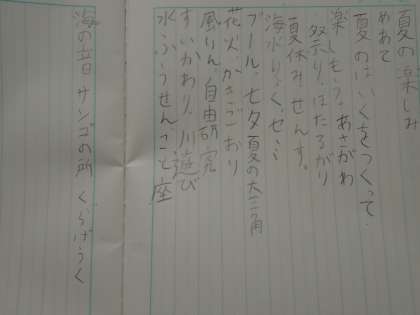 夏の楽しみ
めあて
夏のはいくをつくって
楽しもう。あさがお
祭り、ほたるがり
夏休み、せんす。
海水よく、せみ
プール、七夕夏の大三角
花火、かきごおり
風りん、自由研究
すいかわり、川遊び
水ふうせん、こと座
海の音サンゴの所くらげうく